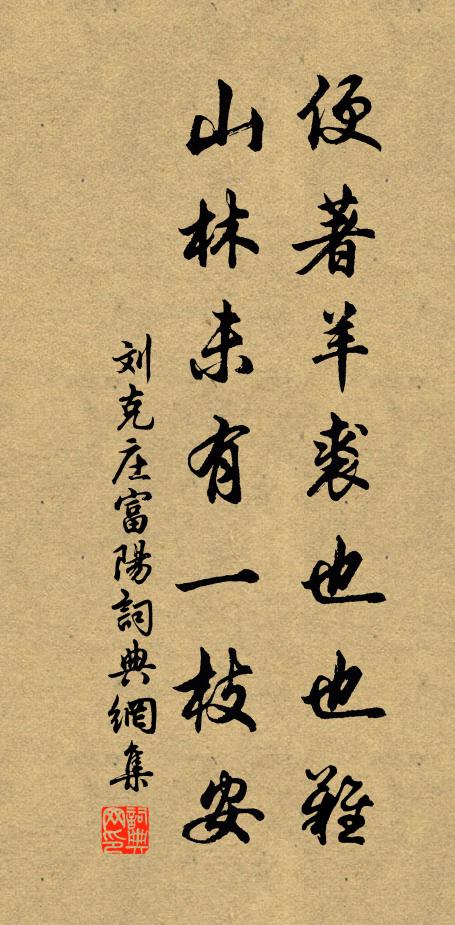 便著羊裘也也難
山林未有一枝安
刘克庄富陽詞典網集
詞典网印